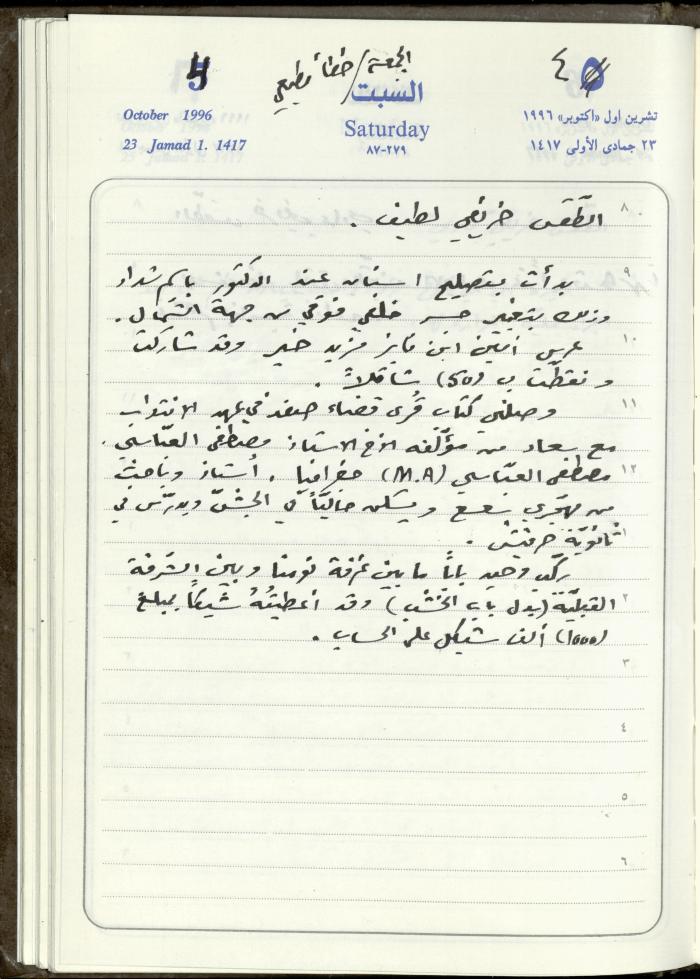 الجمعة / خطأ مطبعي
4 ٤
السبت
October 1996 Saturday تشرين اول «اكتوبر» ١٩٩٦
23 Jamad 1. 1417 ٨٧-٢٧٩ ٢٣ جمادى الأولى ١٤١٧
٨ الطّقس خريفي لطيف .
٩ بدأت بتصليح اسنان عند الدكتور باسم شداد
وذلك بتغيير جسر خلفي فوقي من جهة الشمال .
١٠ عرس أمين ابن فايز مزيد خير وقد شاركت
ونقطت ب (50) شاقلاً .
١١ وصلني كتاب قُرى قضاء صفد في عهد الانتداب
مع سعاد من مؤلّفه الأخ الاستاذ مصطفى العبّاسي .
١٢ مصطفى العبّاسي (M.A) جغرافيا . أستاذ وباحث
من مهجّري سعسع ويسكن حاليًّا في الجشّ ويدرّس في
١ ثانويّة حرفيش .
ركّب وحيد بابًا ما بين غرفة نومنا وبين الشرفة
٢ القبليّة (بدل باب الخشب) وقد أعطيتُهُ شيكًا بمبلغ
(1000) ألف شيكل على الحساب .
٣
٤
٥
٦